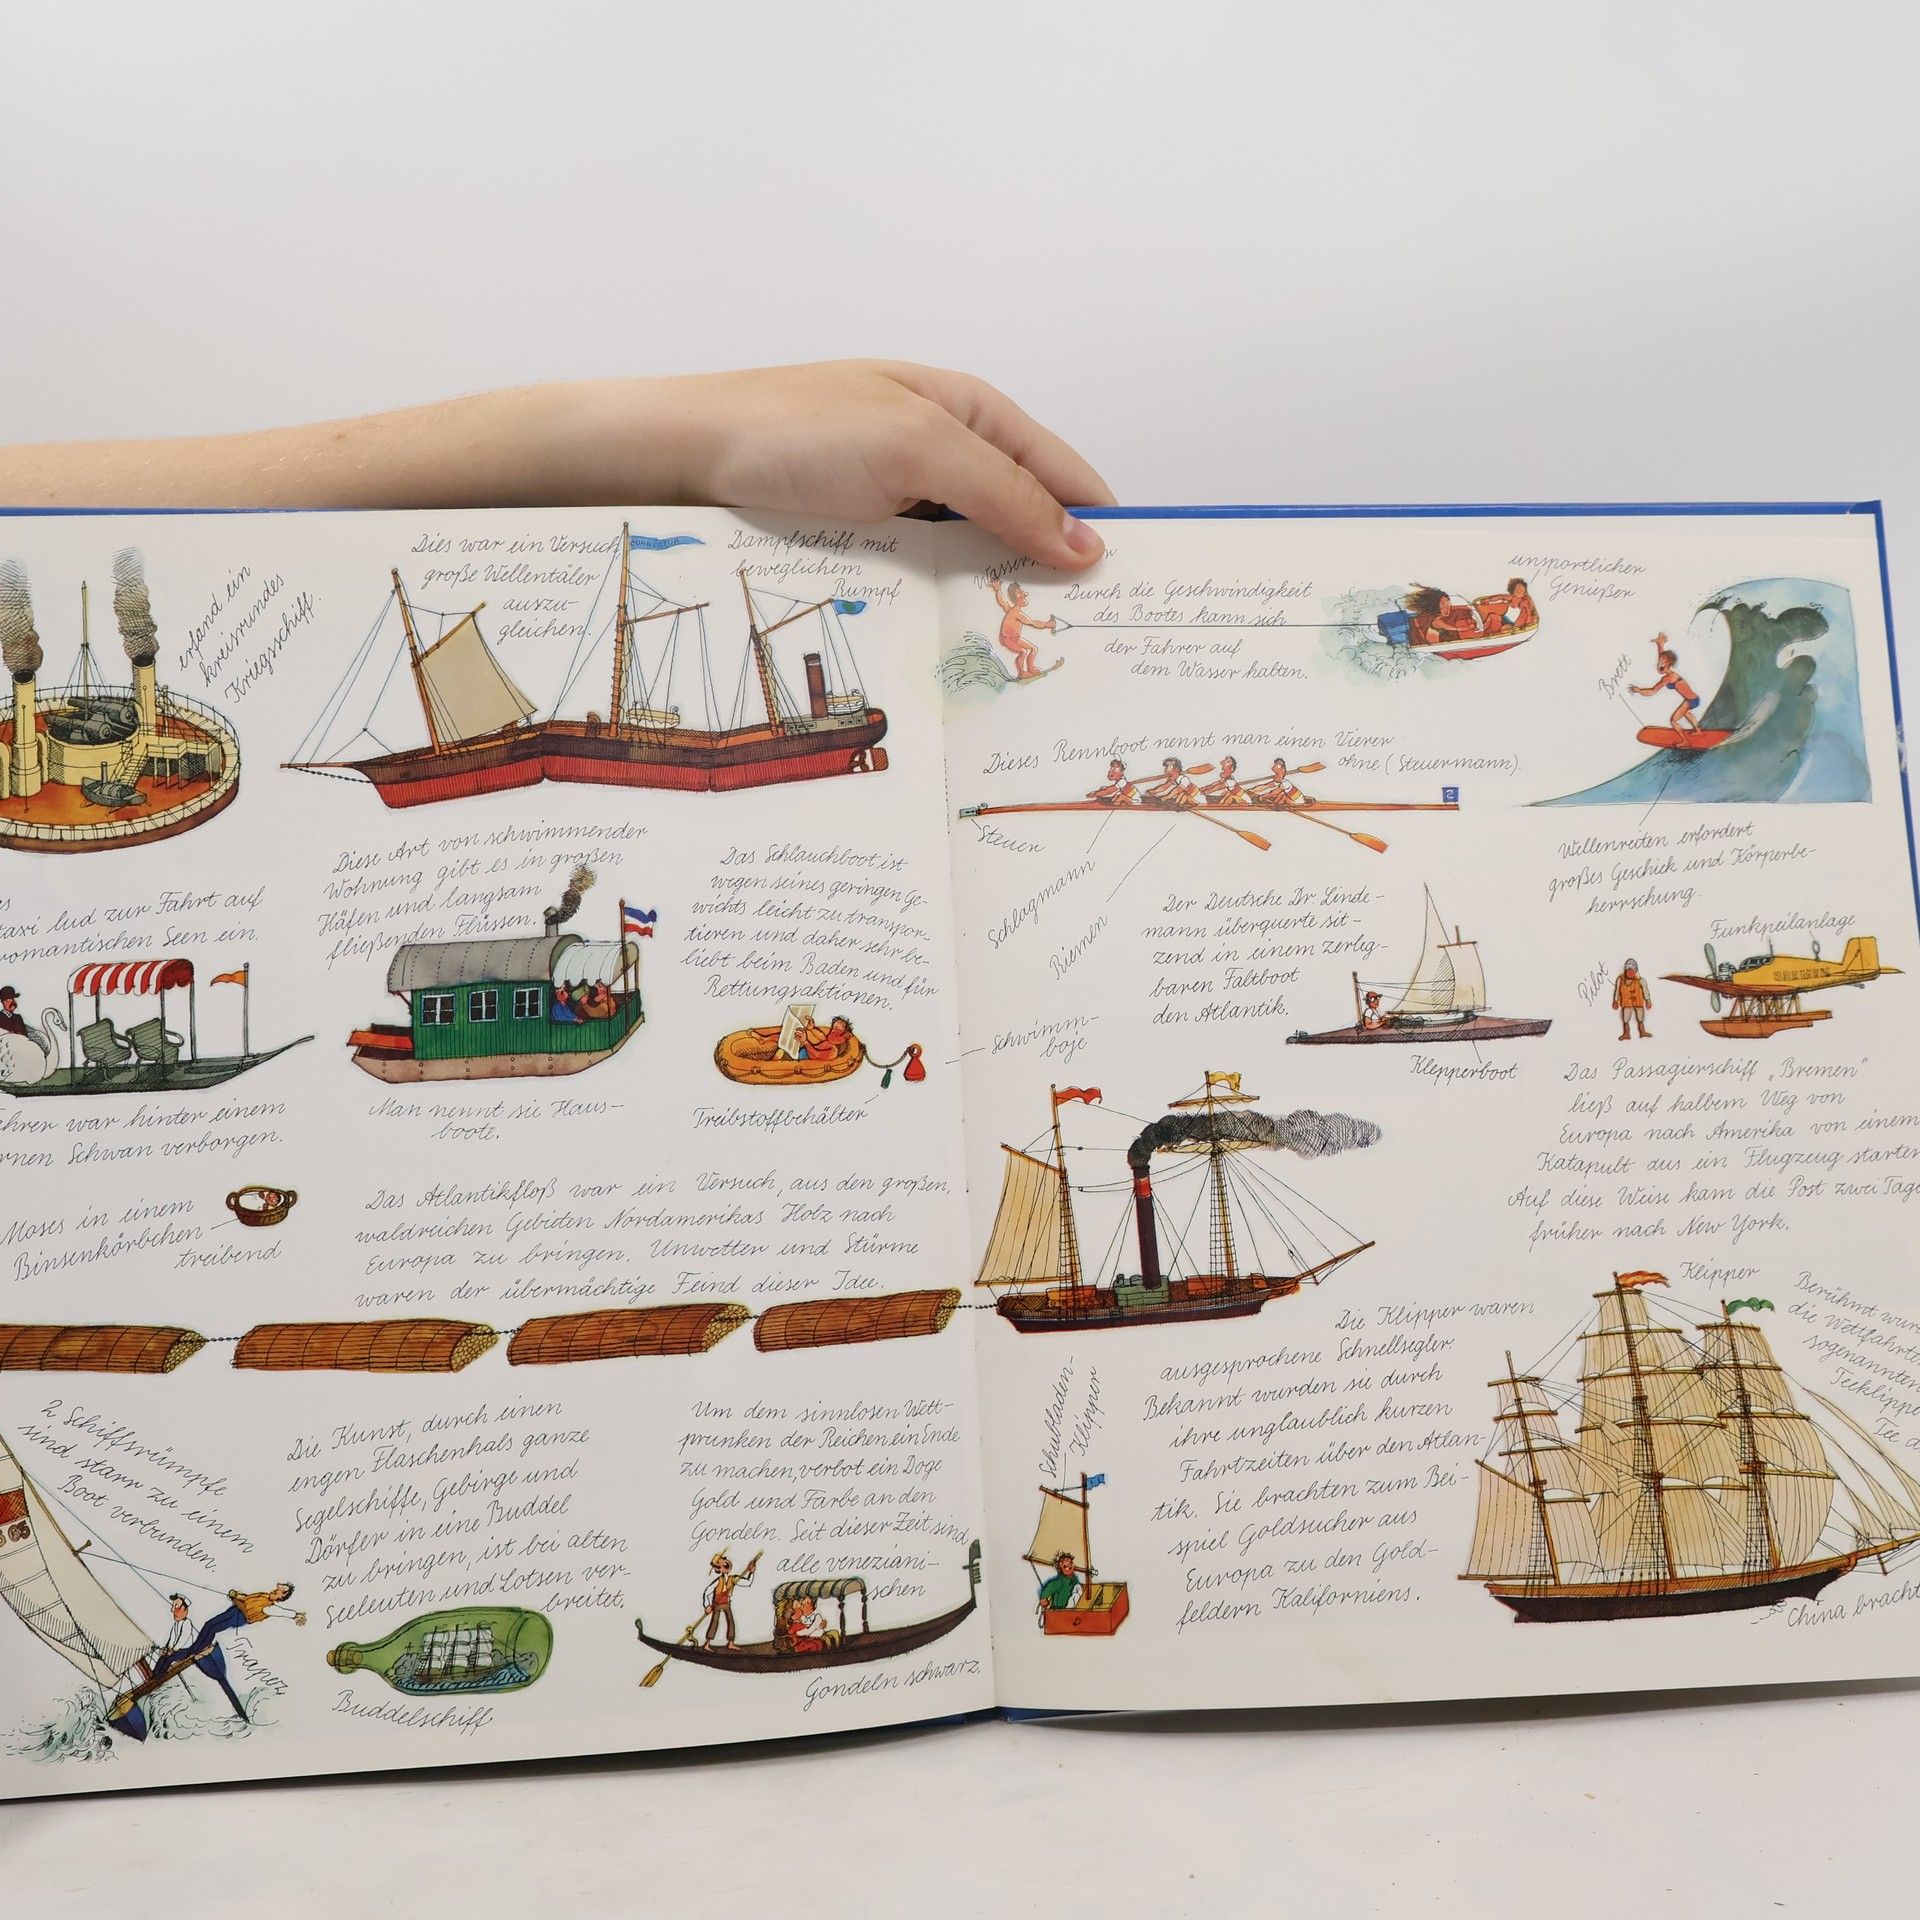 erfand ein
kreisrundes
Kriegsschiff.
Dies war ein Versuch
große Wellentäler
auszu-
gleichen.
CONNECTOR
Dampfschiff mit
beweglichem
Rumpf
taxi lud zur Fahrt auf
romantischen Seen ein.
Fahrer war hinter einem
Schwan verborgen.
Diese Art von schwimmender
Wohnung gibt es in großen
Häfen und langsam
fließenden Flüssen.
Man nennt sie Haus-
boote.
Das Schlauchboot ist
wegen seines geringen Ge-
wichts leicht zu transpor-
tieren und daher sehr be-
liebt beim Baden und für
Rettungsaktionen.
Treibstoffbehälter
Schwimm-
boje
Moses in einem
Binsenkörbchen
treibend
Das Atlantikfloß war ein Versuch, aus den großen,
waldreichen Gebieten Nordamerikas Holz nach
Europa zu bringen. Unwetter und Stürme
waren der übermächtige Feind dieser Idee.
2 Schiffsrümpfe
sind starr zu einem
Boot verbunden.
Trapez
Die Kunst, durch einen
engen Flaschenhals ganze
Segelschiffe, Gebirge und
Dörfer in eine Buddel
zu bringen, ist bei alten
Seeleuten und Lotsen ver-
breitet.
Buddelschiff
Um dem sinnlosen Wett-
prunken der Reichen ein Ende
zu machen, verbot ein Doge
Gold und Farbe an den
Gondeln. Seit dieser Zeit sind
alle veneziani-
schen
Gondeln schwarz.
Durch die Geschwindigkeit
des Bootes kann sich
der Fahrer auf
dem Wasser halten.
unsportlicher
Genießer
Brett
Wellenreiten erfordert
großes Geschick und Körperbe-
herrschung.
Dieses Rennboot nennt man einen Vierer
ohne (Steuermann).
2
Steuer
Schlagmann
Riemen
Der Deutsche Dr Linde-
mann überquerte sit-
zend in einem zerleg-
baren Faltboot
den Atlantik.
Klepperboot
Pilot
Funkpeilanlage
BREMEN
Das Passagierschiff „Bremen"
ließ auf halbem Weg von
Europa nach Amerika von einem
Katapult aus ein Flugzeug starten
Auf diese Weise kam die Post zwei Tage
früher nach New York.
Schubladen-
Klipper
Die Klipper waren
ausgesprochene Schnellsegler.
Bekannt wurden sie durch
ihre unglaublich kurzen
Fahrtzeiten über den Atlan-
tik. Sie brachten zum Bei-
spiel Goldsucher aus
Europa zu den Gold-
feldern Kaliforniens.
Klipper
Berühmt
die Wettfahrten
sogenannten
Teeklipper
Tee
China